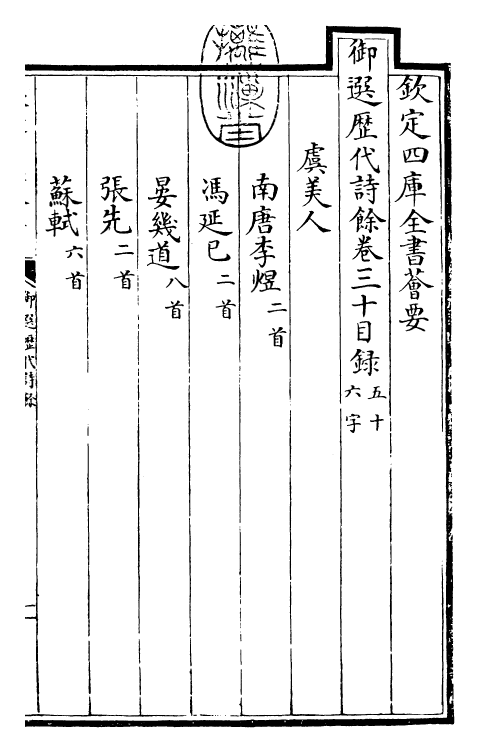 欽定四庫全書薈要
御選歴代詩餘卷三十目録五十六字
虞美人
南唐李煜二首
馮延巳二首
晏幾道八首
張先二首
蘇軾六首
御選歴代詩餘
一